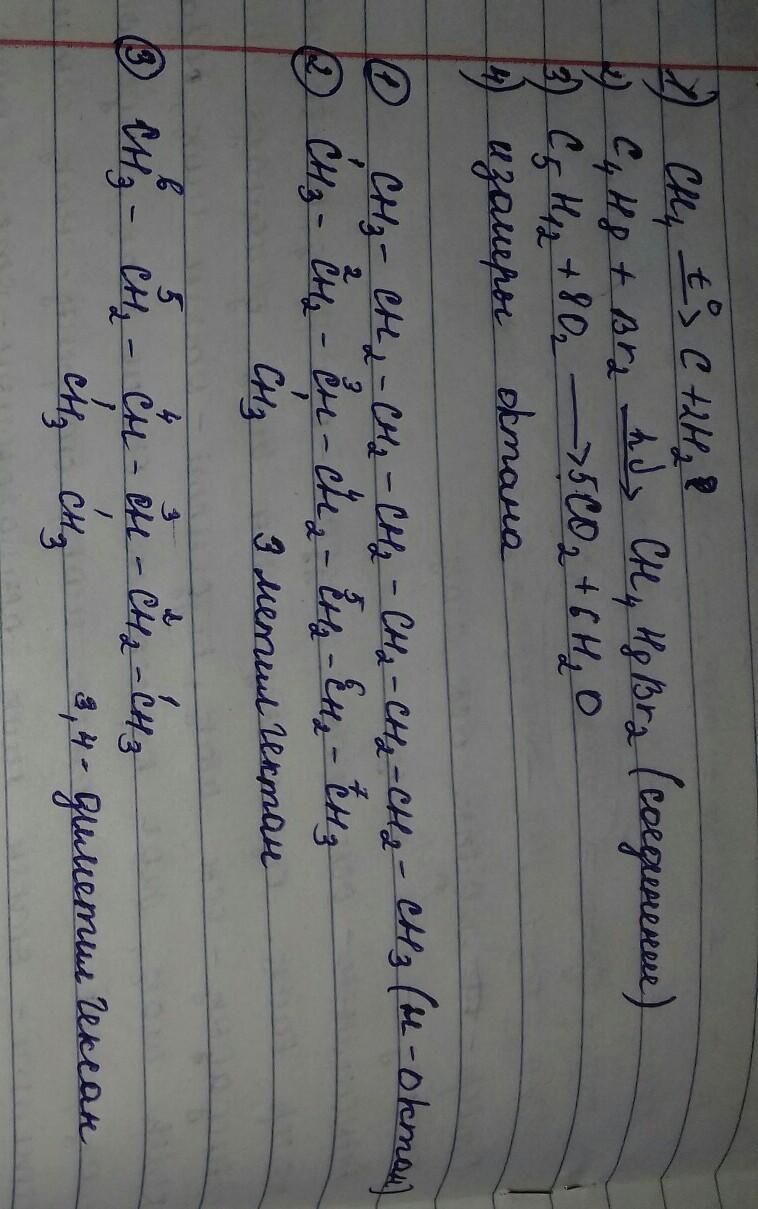 1) CH₄ —t°→ C + 2H₂
2) C₄H₈ + Br₂ —hν→ CH₄H₈Br₂ (соединение)
3) C₅H₁₂ + 8O₂ ⟶ 5CO₂ + 6H₂O
4) изомеры октана
① CH₃ – CH₂ – CH₂ – CH₂ – CH₂ – CH₂ – CH₂ – CH₃ (н – октан)
1 2 3 4 5 6 7
② CH₃ – CH₂ – CH – CH₂ – CH₂ – CH₂ – CH₃
CH₃ 3 метил гептан
6 5 4 3 2 1
③ CH₃ – CH₂ – CH – CH – CH₂ – CH₃
CH₃ CH₃ 3,4 - диметил гексан